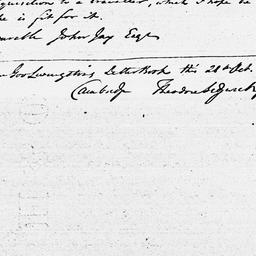 to a traveller, which I hope he
he is fit for it.
John Jay Esqr
Gov Livingstons Letter Book this 28th Oct.
Cambridge Theodore Sedgwick